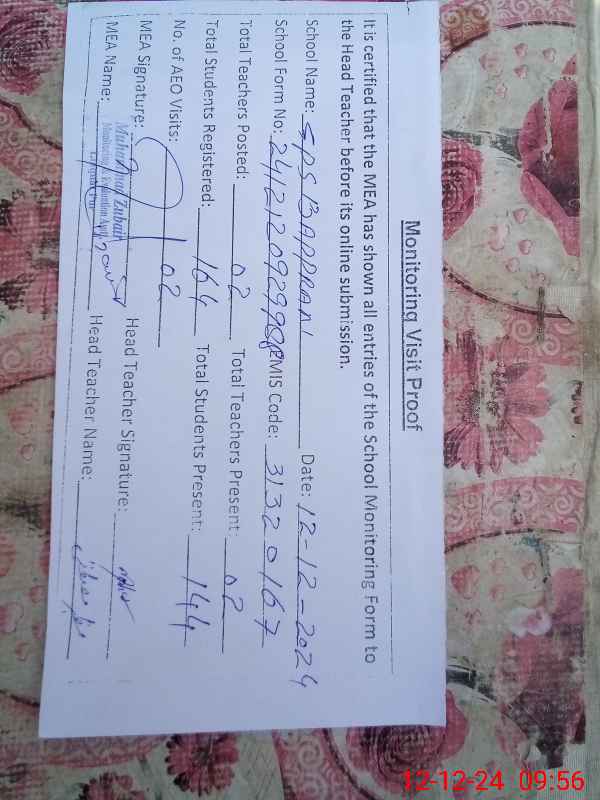 Monitoring Visit Proof
It is certified that the MEA has shown all entries of the School Monitoring Form to
the Head Teacher before its online submission.
School Name: SPS BAPPRANI Date: 12-12-2024
School Form No: EMIS Code: 31320167
Total Teachers Posted: 02 Total Teachers Present: 02
Total Students Registered: 164 Total Students Present: 144
No. of AEO Visits: 02
MEA Signature: Head Teacher Signature:
Muhammad Zubair
Monitoring & Evaluation Asstt
MEA Name: Head Teacher Name:
12-12-24 09:56